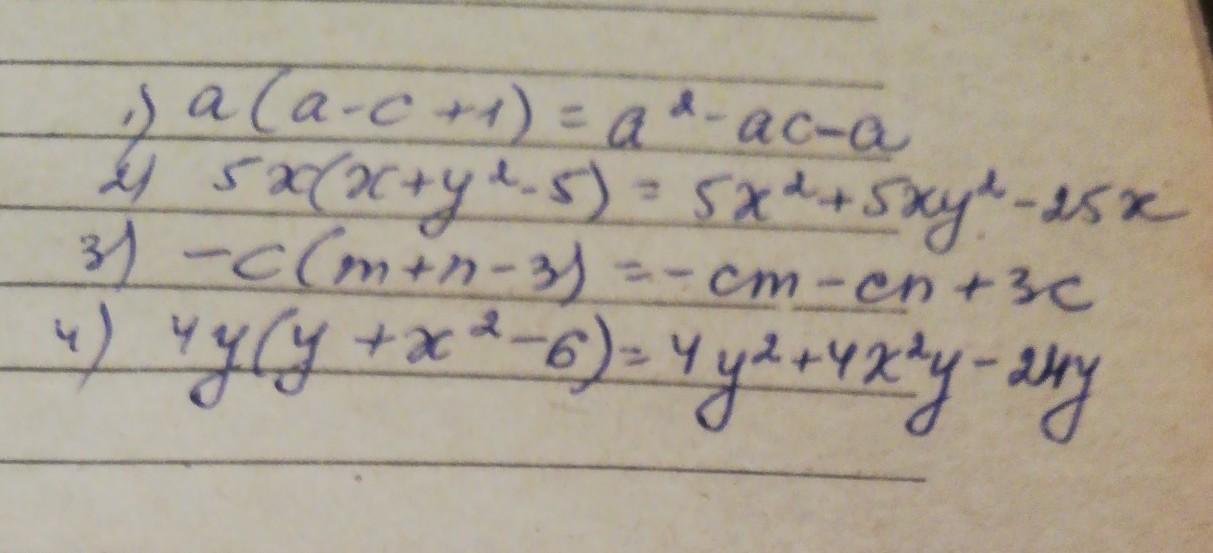 1) a(a-c+1)=a²-ac-a
2) 5x(x+y²-5)=5x²+5xy²-25x
3) -c(m+n-3)=-cm-cn+3c
4) 4y(y+x²-6)=4y²+4x²y-24y